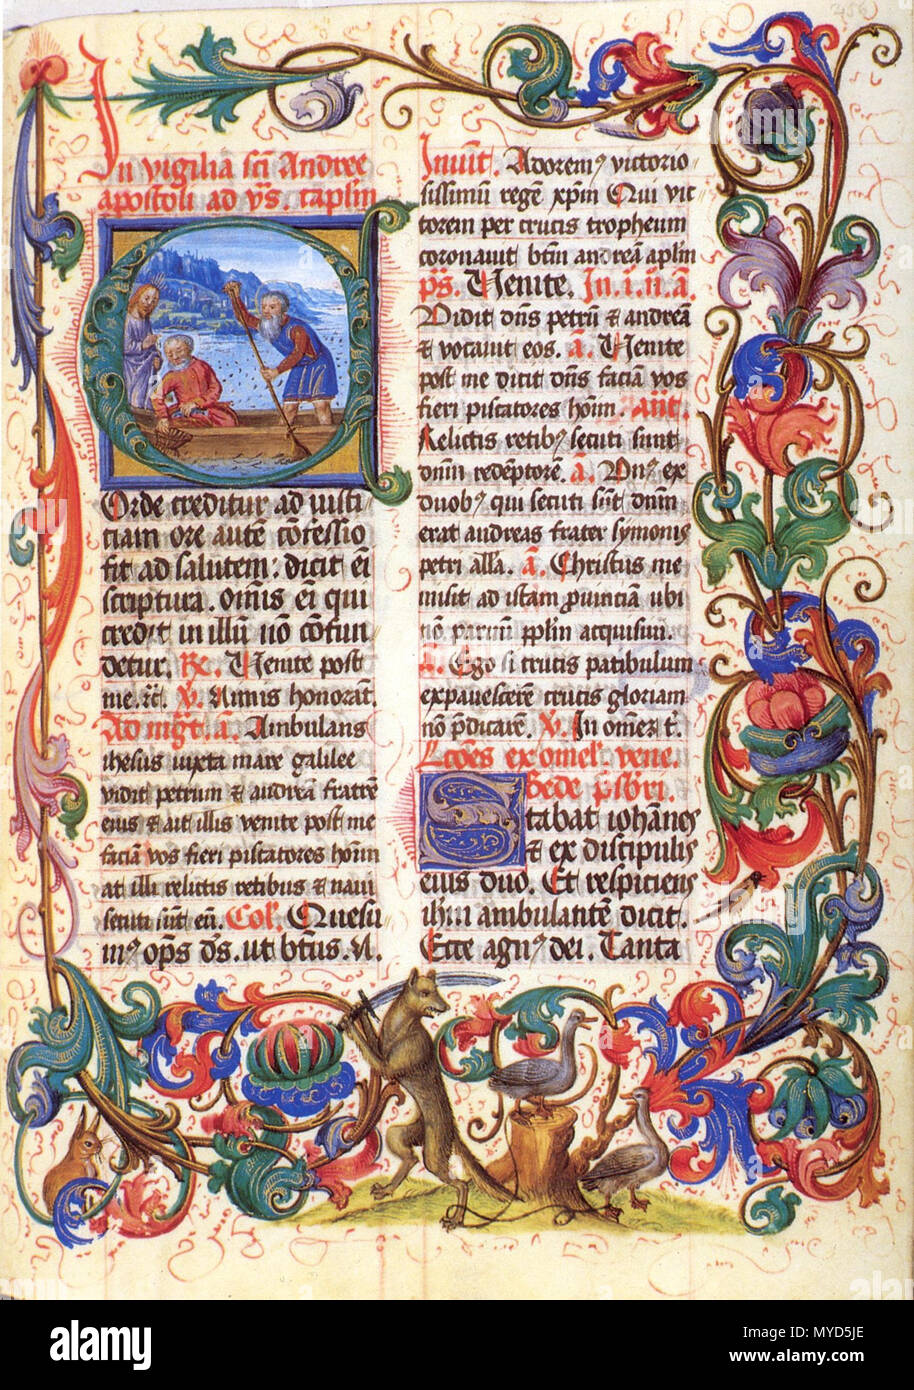 In vigilia sci Andree
apostoli ad vs. caplm
Corde creditur ad iusti
ciam ore aute cofessio
fit ad salutem. dicit ei
scriptura. omis ei qui
credit in illu no cofun
detur. R. Uenite post
me. V. Nimis honorat.
Ad mgt. a. Ambulans
ihesus iuxta mare galilee
vidit petrum & andrea fratre
eius & ait illis venite post me
facia vos fieri piscatores hoim
at illi relictis retibus & navi
secuti sut eu. Col. Quesu
mus ops ds. ut btus. N.
Inuit. Adorem9 victorio
sissimu rege xpm Qui vic
torem per crucis tropheum
coronavit btm andrea aplm
ps. Uenite. In. i. n. a.
Vidit dns petru & andrea
& vocavit eos. a. Uenite
post me dicit dns facia vos
fieri piscatores hoim. Ant.
Relictis retib9 secuti sunt
dnm redeptore. a. Un9 ex
duob9 qui secuti st dnm
erat andreas frater symonis
petri alla. a. Christus me
misit ad istam provincia ubi
no parvu pplm acquisivi.
a. Ego si crucis patibulum
expavescere crucis gloriam
no pdicare. V. In omez t.
Lcoes ex omel. vene.
Bede psbri.
Stabat iohanes
& ex discipulis
eius duo. Et respiciens
ihm ambulante dicit.
Ecce agn9 dei. Tanta
alamy
Image ID: MYD5JE
www.alamy.com